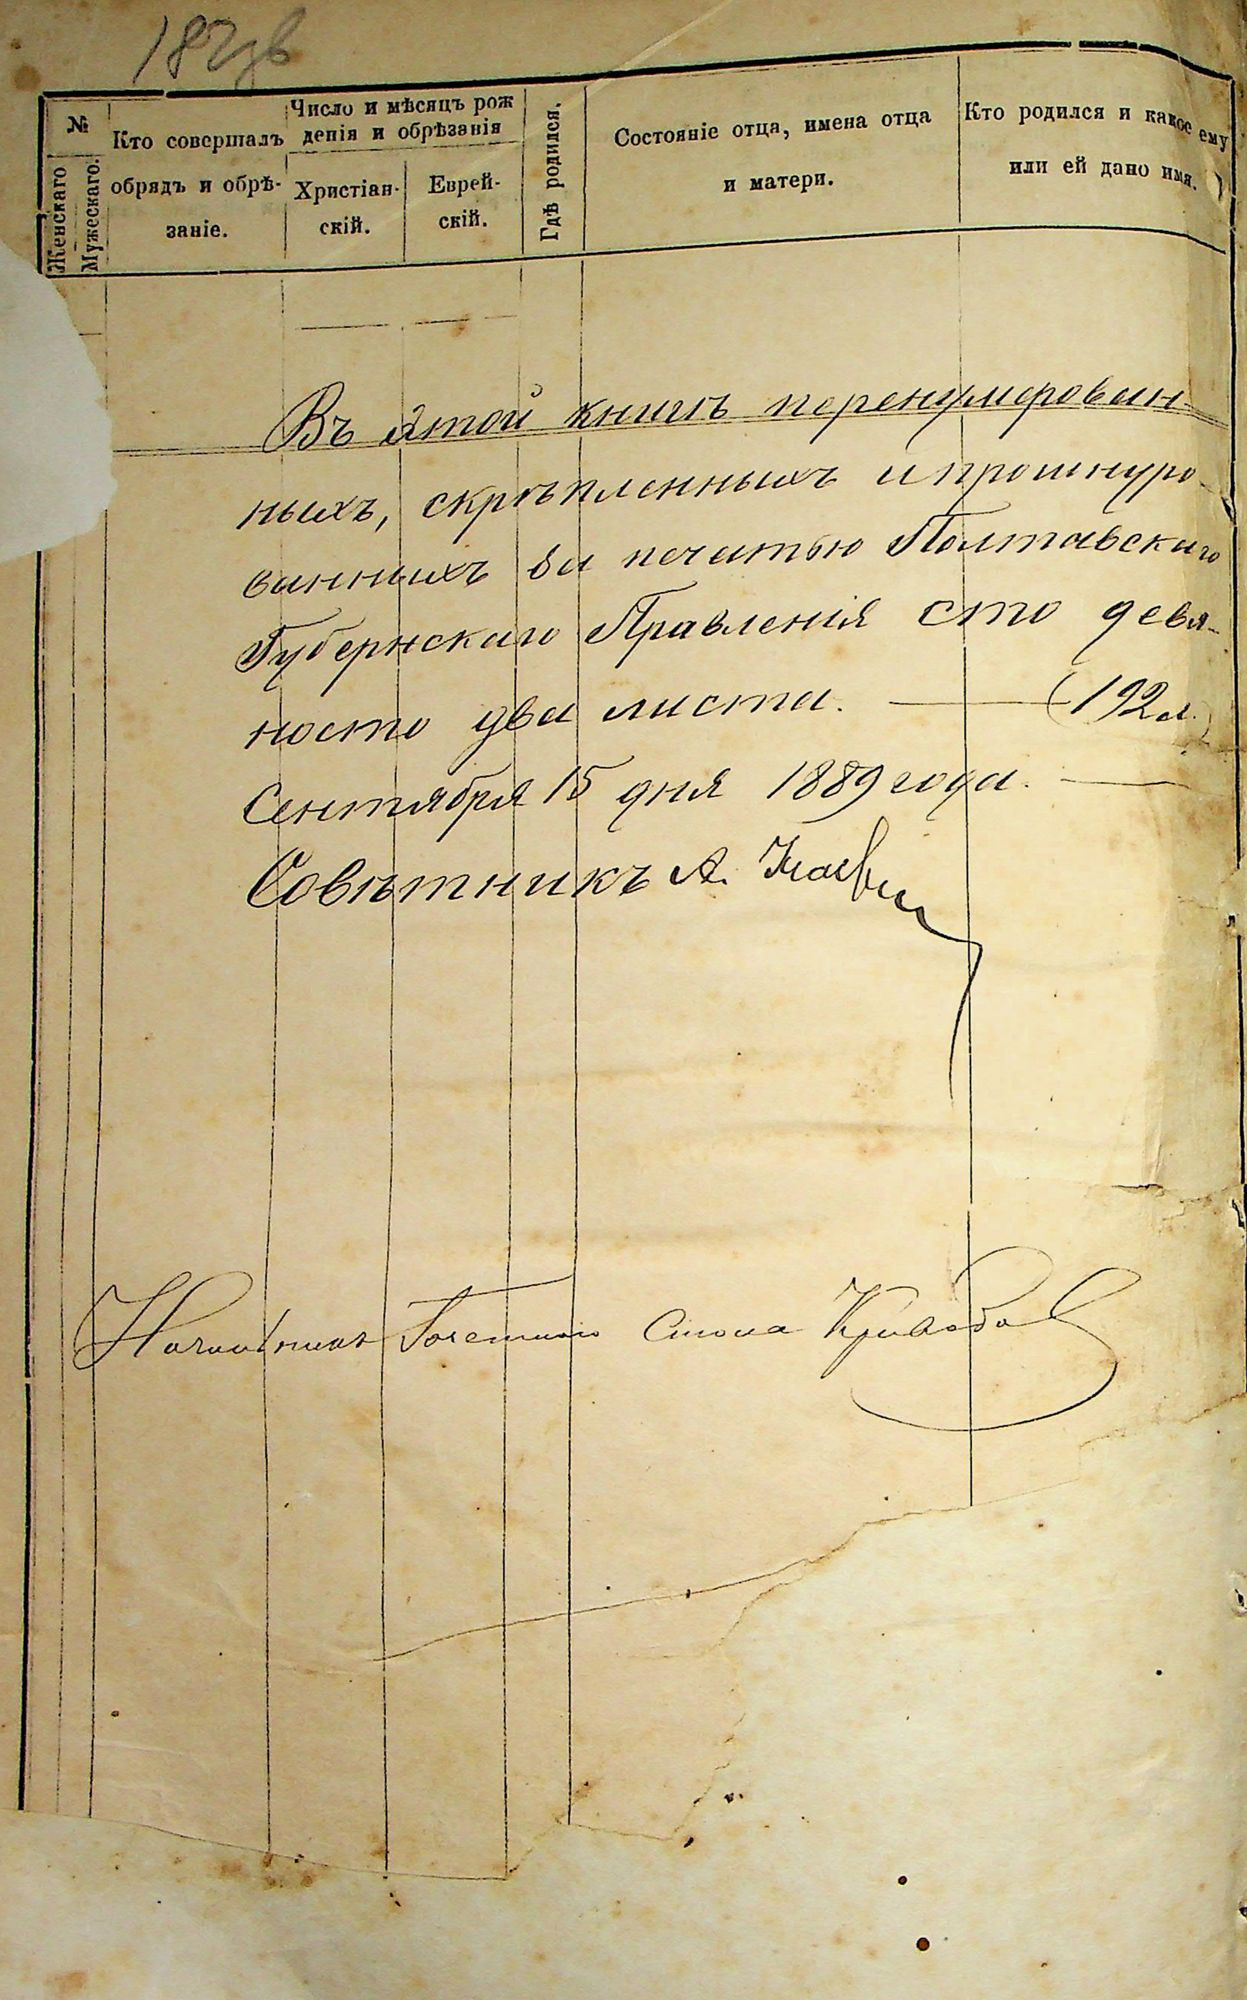 №
Женскаго
Мужескаго.
Кто совершалъ
обрядъ и обрѣ-
заніе.
Число и мѣсяцъ рож
денія и обрѣзанія
Христіан-
скій.
Еврей-
скій.
Гдѣ родился.
Состояніе отца, имена отца
и матери.
Кто родился и какое ему
или ей дано имя.
Въ этой книгѣ перенумерован
ныхъ, скрѣпленныхъ и прошнуро-
ванныхъ за печатью Полтавскаго
Губернскаго Правленія сто девя-
носто два листа. — (192 л.)
Сентября 15 дня 1889 года. —
Совѣтникъ А.
Начальникъ Газетнаго Стола